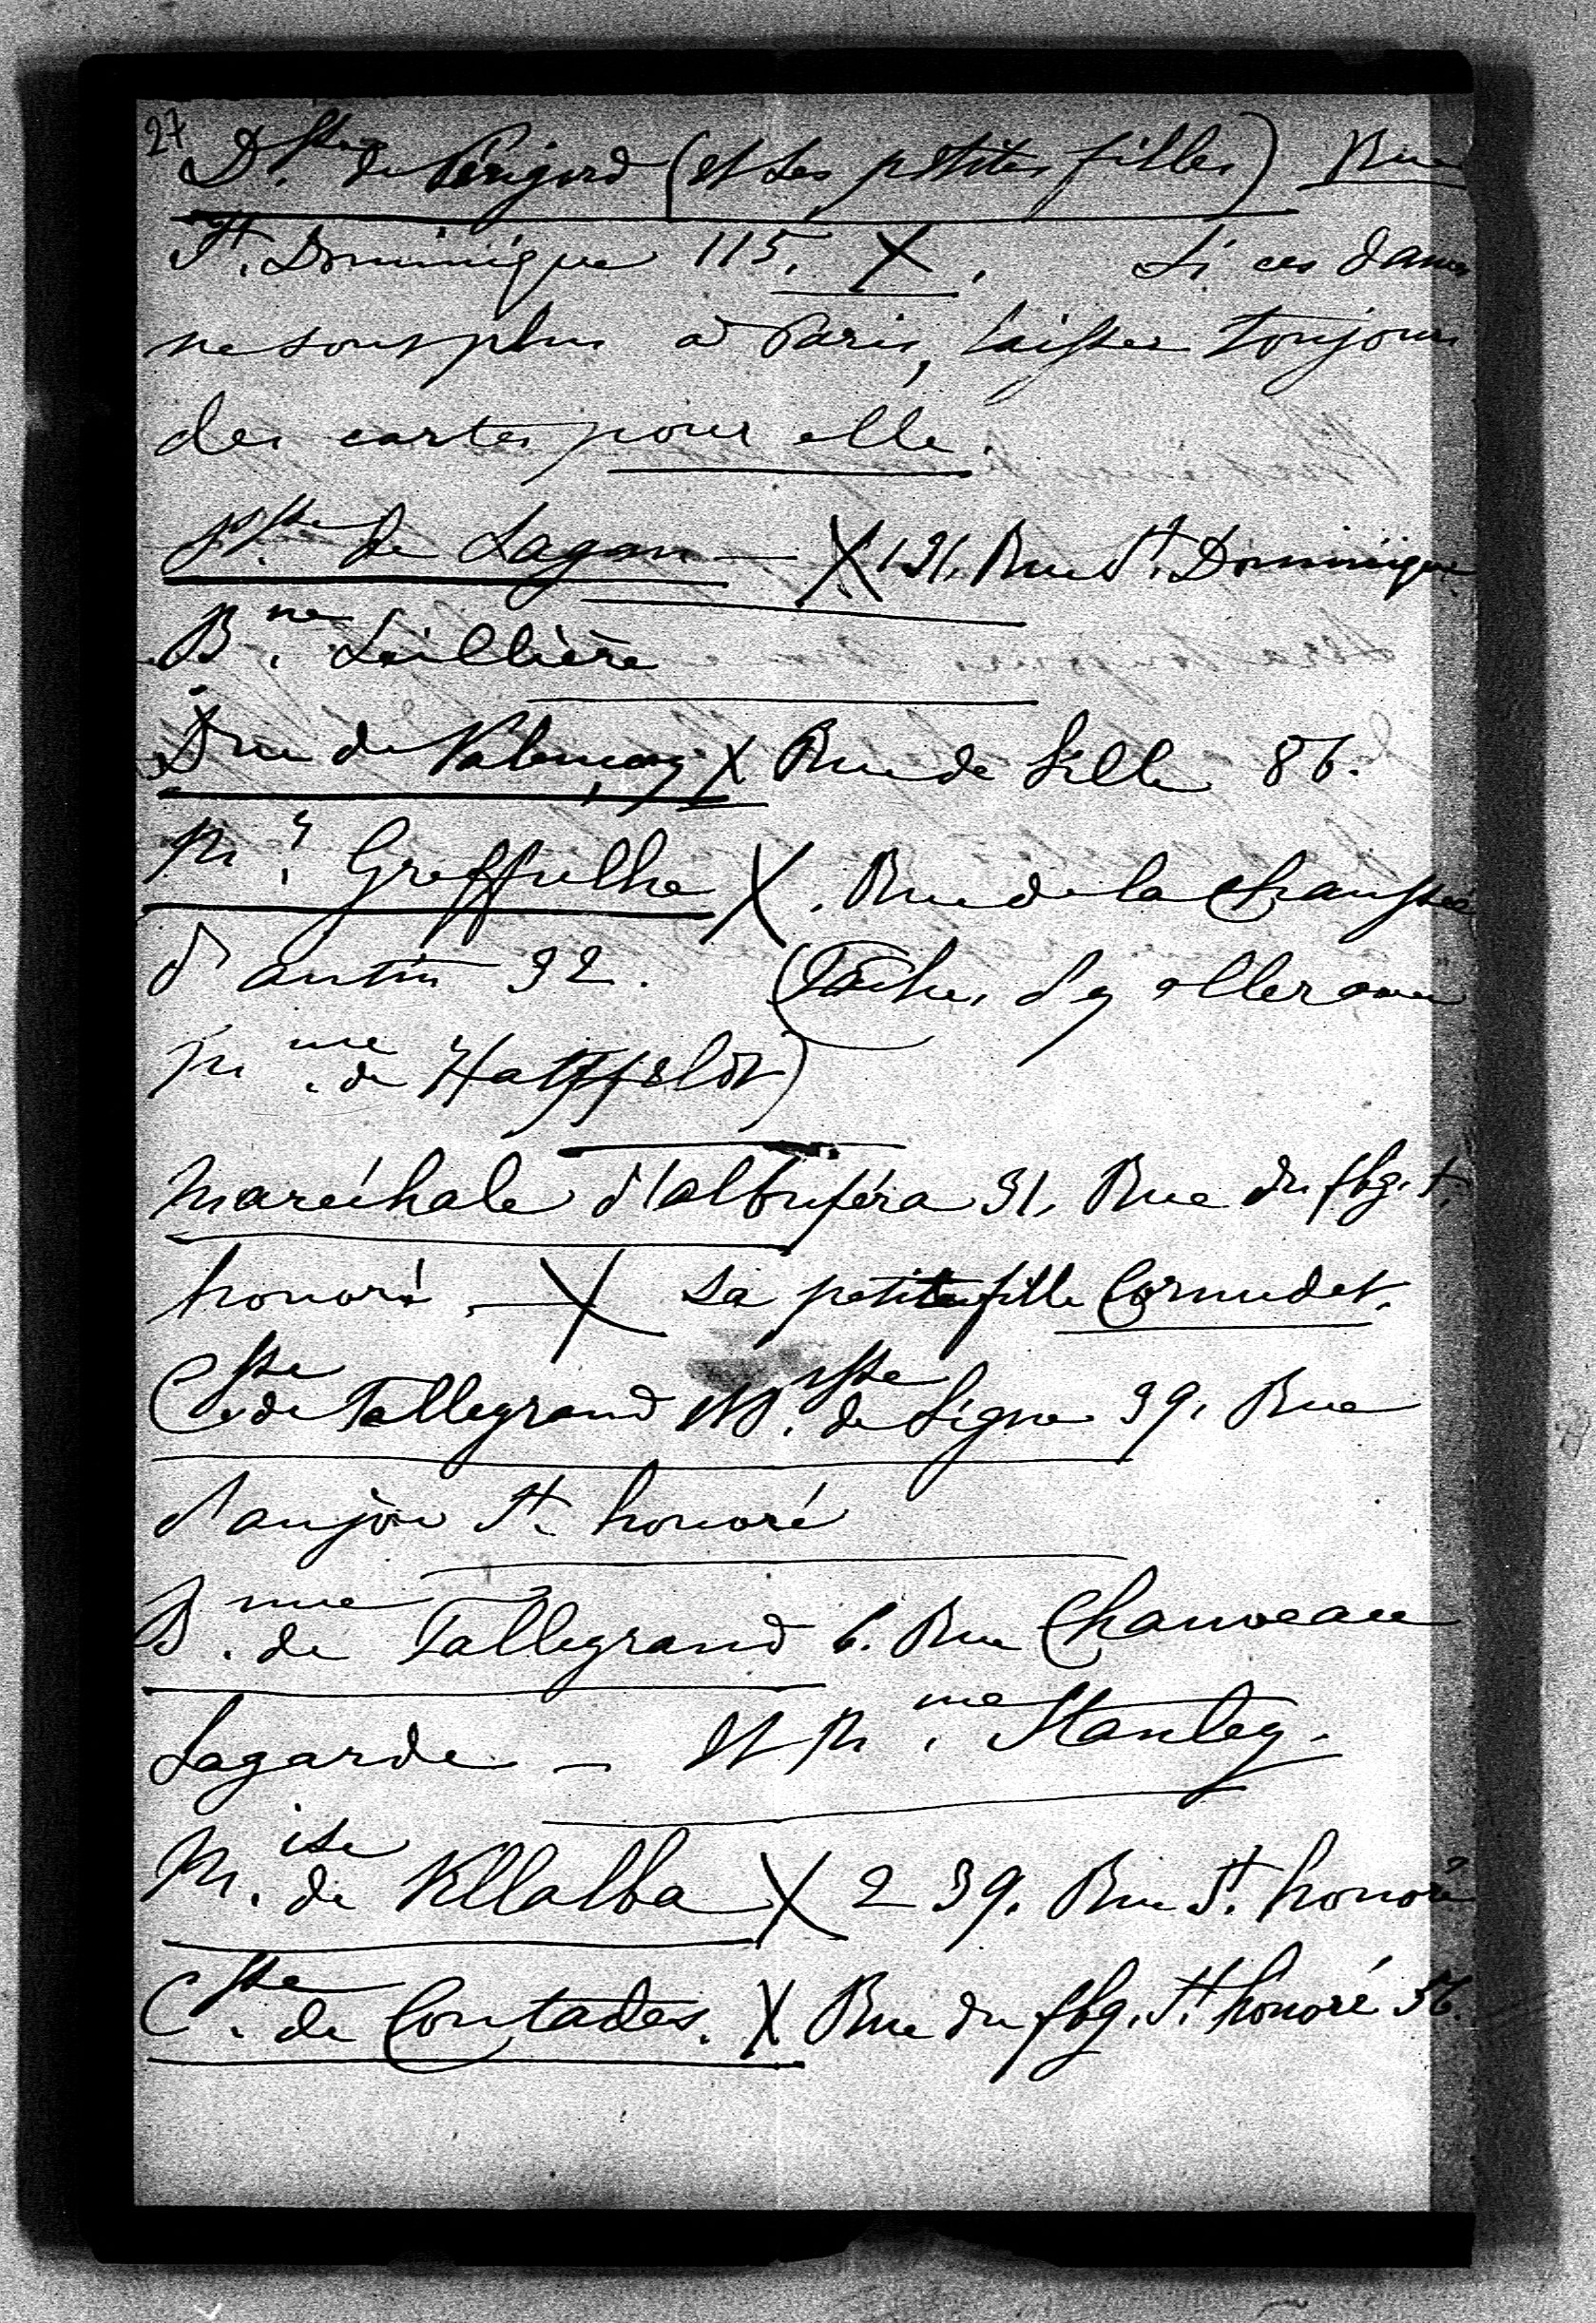 27
D.sse de Périgord (et ses petites filles) Rue
St. Dominique 115. X. Si ces dames
ne sont plus à Paris, laisser toujours
des cartes pour elle.
P.sse de Sagan — X 121, Rue St. Dominique
B.ne Seillière
Dsse de Valençay X Rue de Lille 86.
M.s Greffulhe X. Rue de la Chaussée
d'antin 32. (Tâcher d'y aller avec
M.me de Hatzfeldt)
Maréchale d'albuféra 31, Rue du fbg. St.
honoré. — X sa petite fille Cornudet.
C.sse de Talleyrand et P.sse de Ligne 39, Rue
d'anjou St. honoré
B.nne de Talleyrand 6. Rue Chauveau
Lagarde — et M.me Stanley.
M.ise de Villalba X 239. Rue St. honoré
C.sse de Contades. X Rue du fbg. St. honoré 56.